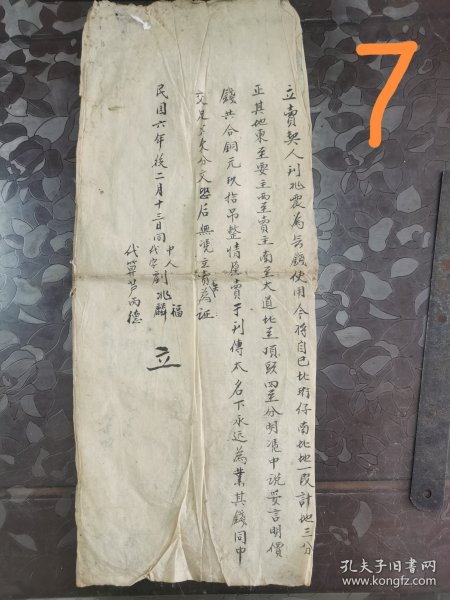 立賣契人刘兆震為長錢使用今将自己北街仔南北地一段計地三分
正其地東至要主西至賣主南至大道北至項頭四至分明憑中説妥言明價
錢共合銅元玖拾吊整情愿賣于刘傳太名下永远為業其錢同中
交足不欠分文恐后無凭立賣為証
契
民国六年後二月十三日同
中人
代字 劉兆福
麟
代算 芦丙德
立
7
孔夫子旧书网
www.kongfz.com